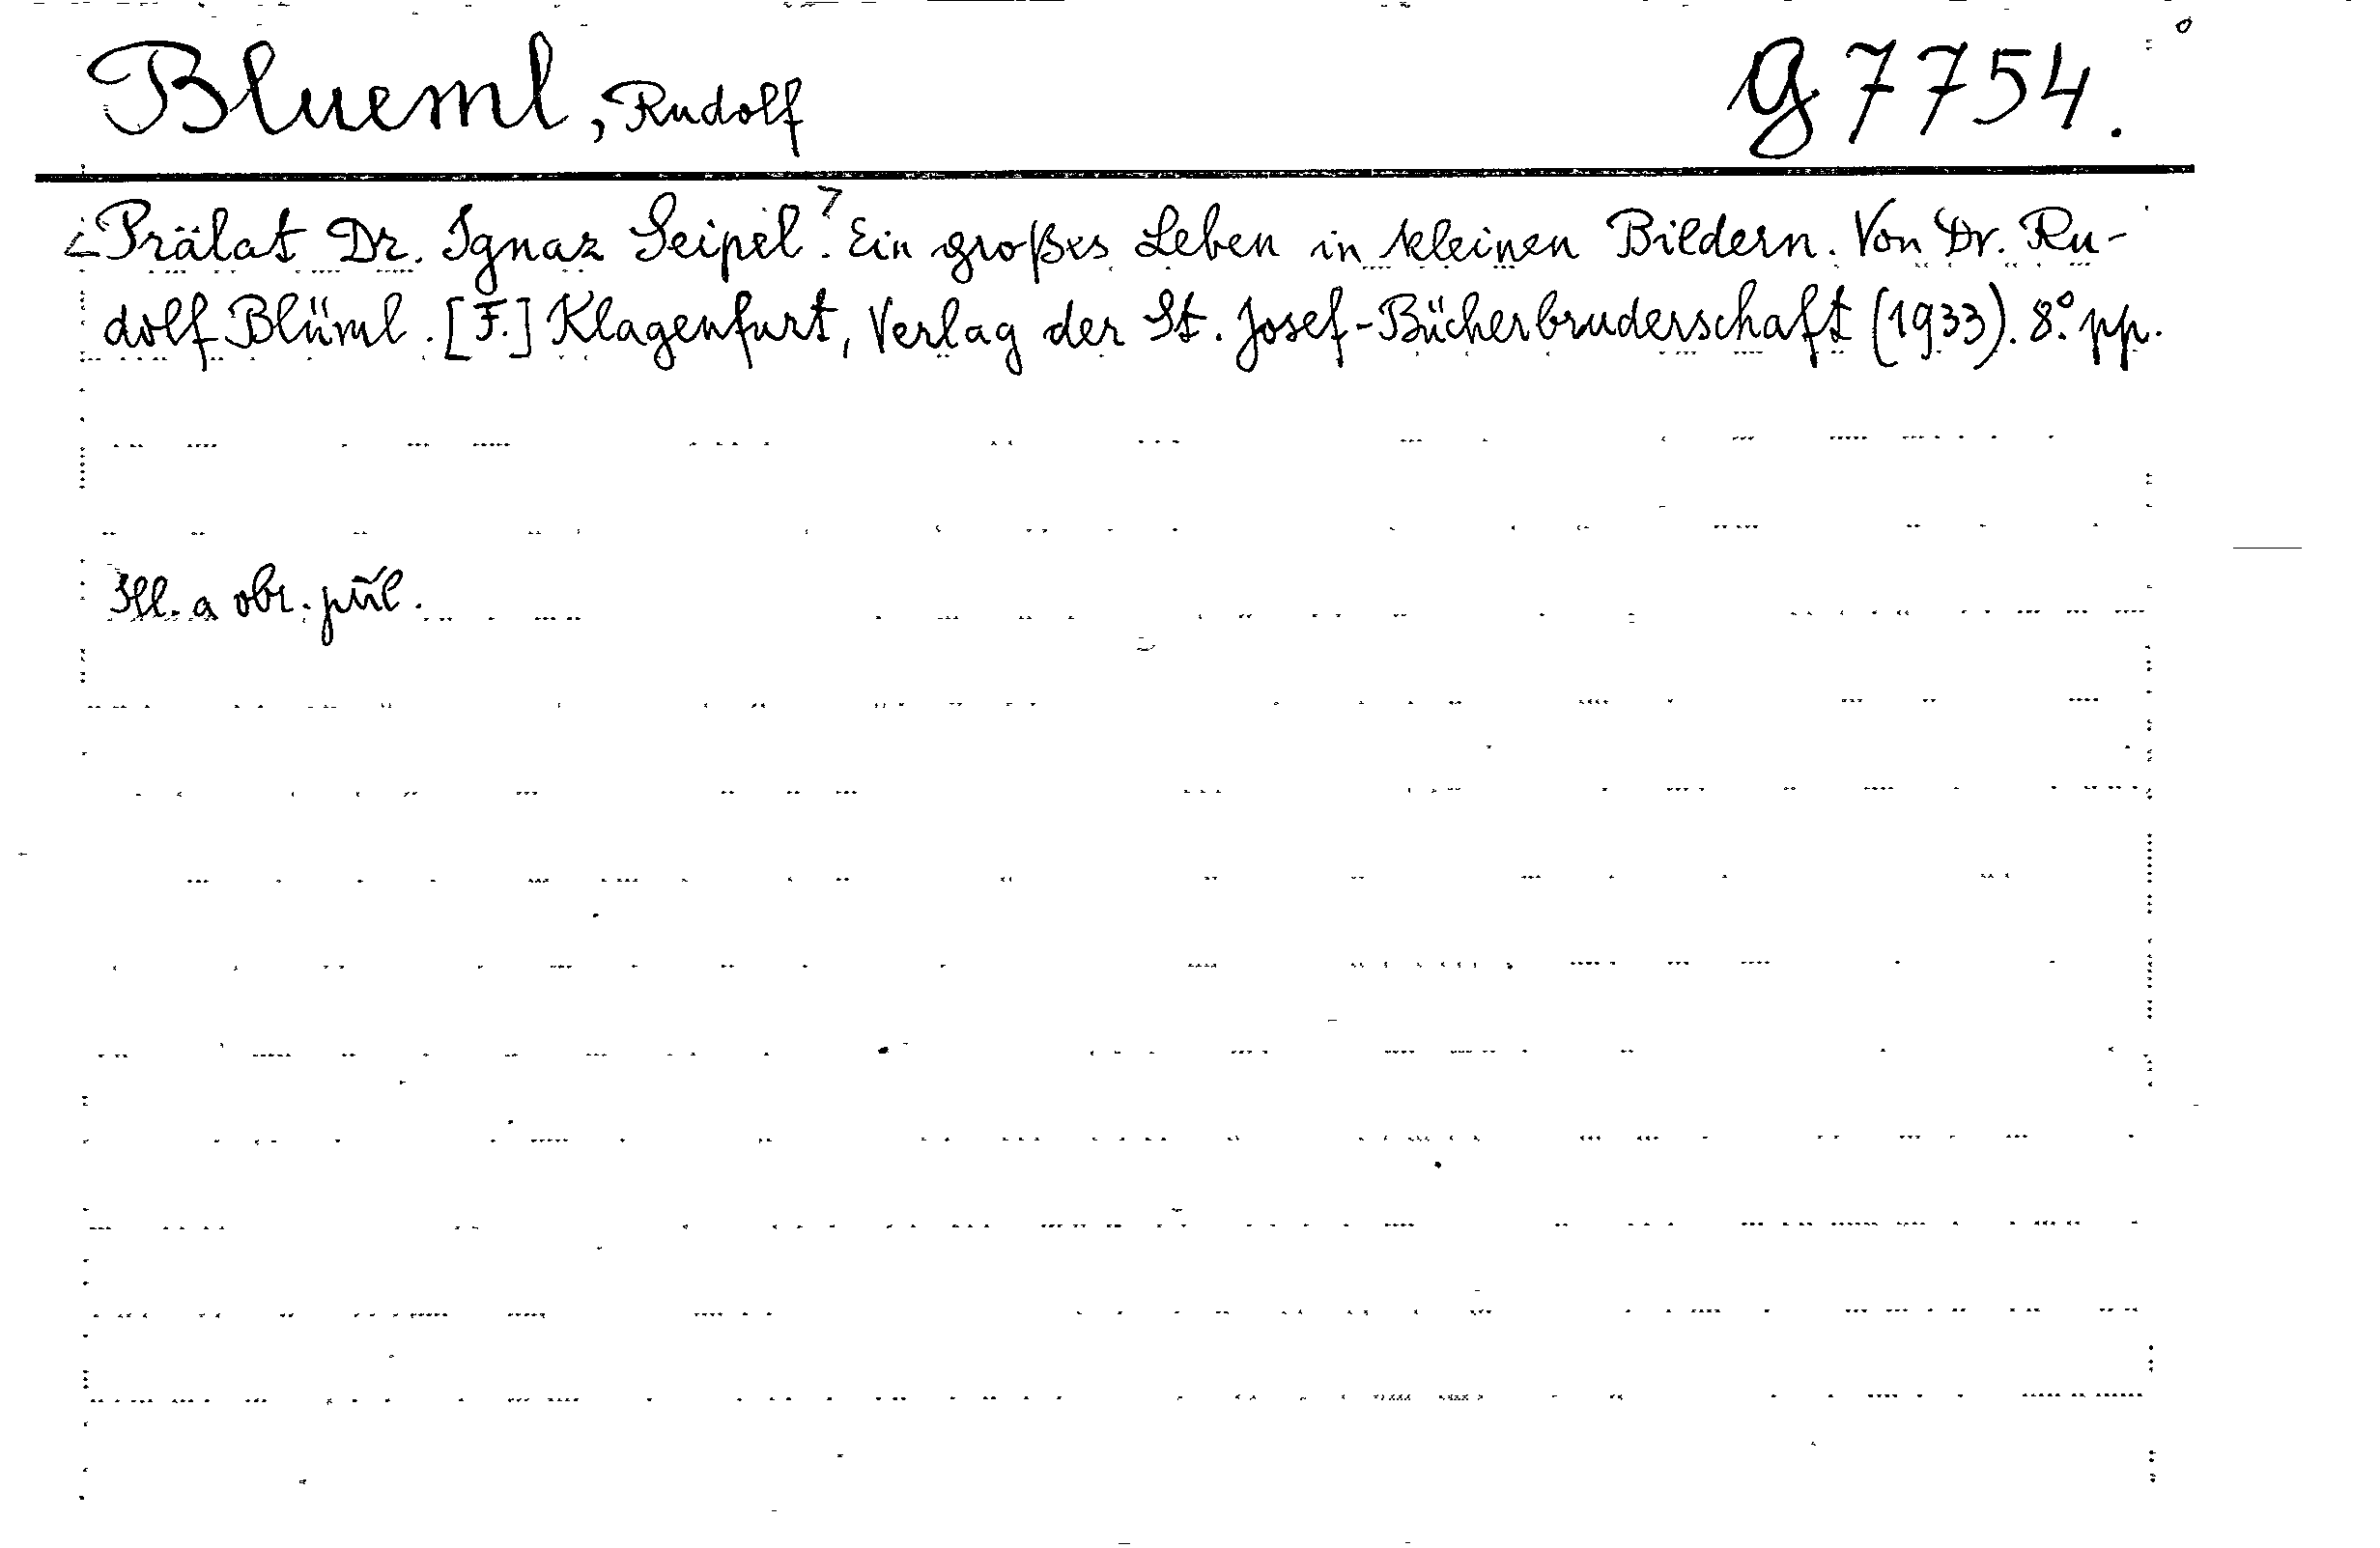 Blueml, Rudolf g 7754.
<Prälat Dr. Ignaz Seipel.> Ein großes Leben in kleinen Bildern. Von Dr. Ru-
dolf Blüml. [F.] Klagenfurt, Verlag der St. Josef-Bücherbruderschaft (1933). 8° pp.
Ill. a obr. příl.